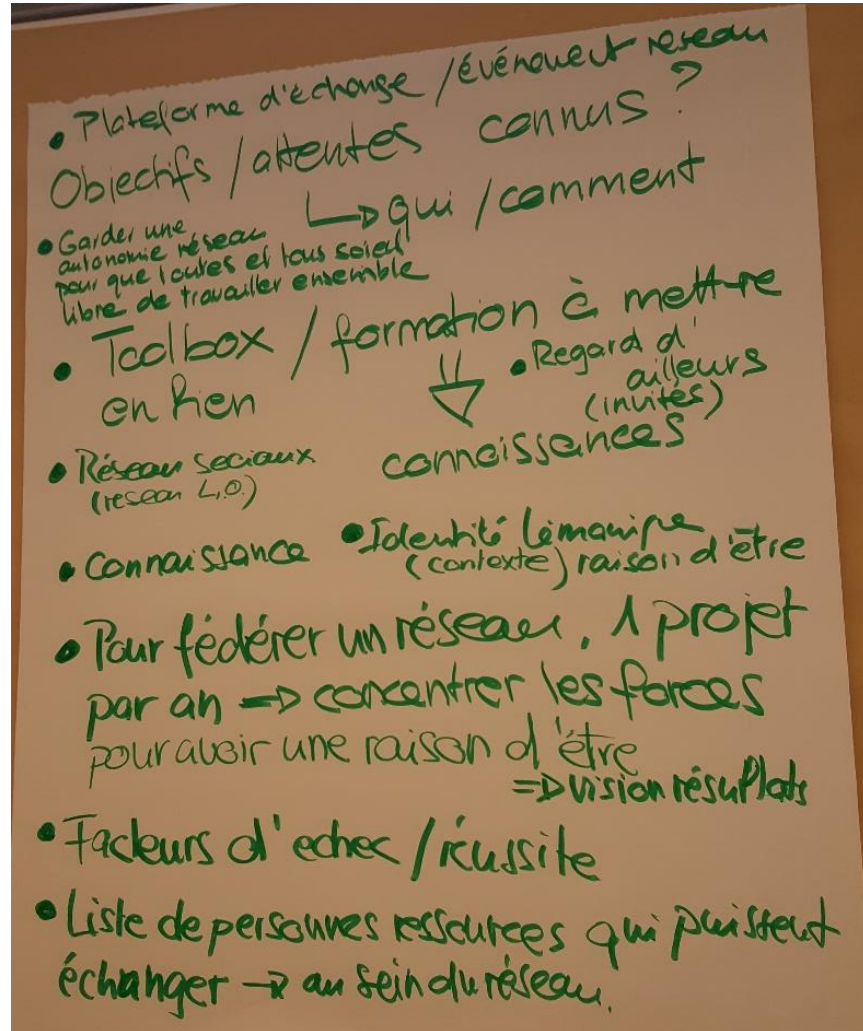 • Plateforme d'échange / événement réseau
Objectifs / attentes connus ?
↳ qui / comment
• Garder une
autonomie réseau
pour que toutes et tous soient
libre de travailler ensemble
• Toolbox / formation à mettre
en lien
• Regard d'
ailleurs
(invités)
⇓ connaissances
• Réseau sociaux
(reseau L.O.)
• Connaissance
• Identité Lémanique
(contexte) raison d'être
• Pour fédérer un réseau, 1 projet
par an => concentrer les forces
pour avoir une raison d'être
=> vision résultats
• Facteurs d'echec / réussite
• Liste de personnes ressources qui puissent
échanger → au sein du réseau.